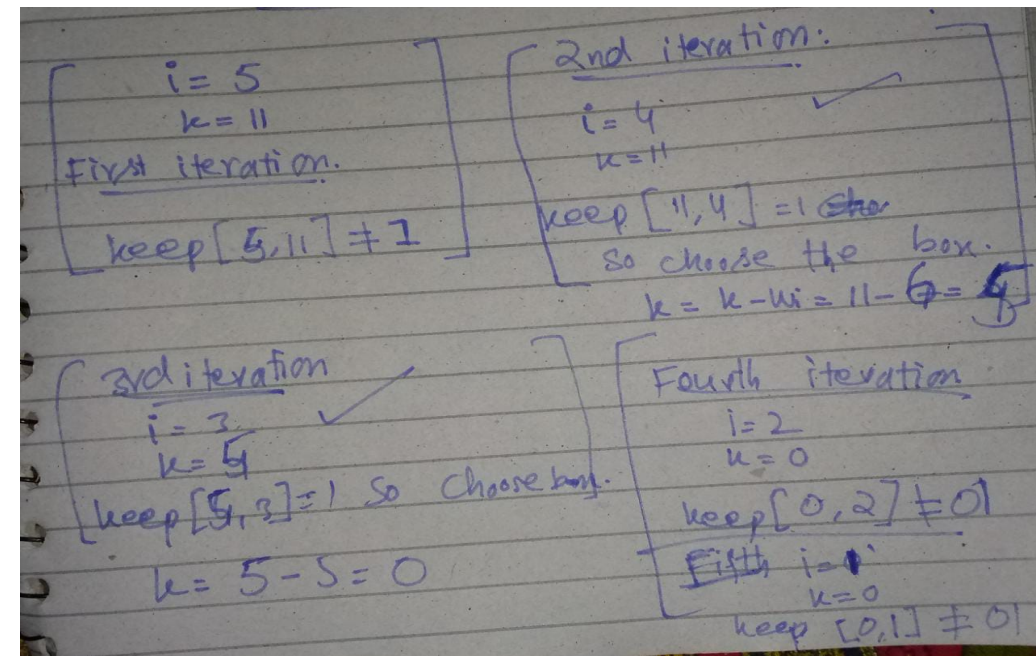 i = 5
k = 11
First iteration.
keep [5,11] ≠ 1
2nd iteration:
i = 4
k = 11
keep [11,4] = 1
so choose the box.
k = k - wi = 11 - 6 = 5
3rd iteration
i = 3
k = 5
keep [5,3] = 1 so choose box.
k = 5 - 5 = 0
Fourth iteration
i = 2
k = 0
keep [0,2] ≠ 01
Fifth i = 1
k = 0
keep [0,1] ≠ 01